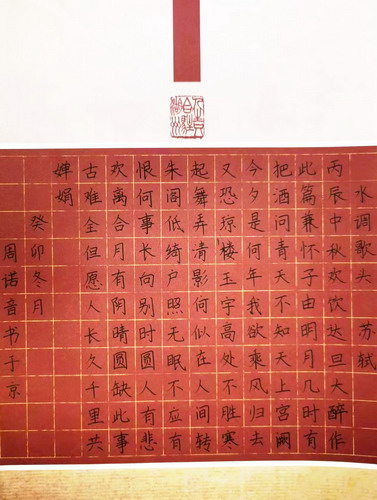 水调歌头 苏轼
丙辰中秋欢饮达旦大醉作
此篇兼怀子由明月几时有
把酒问青天不知天上宫阙
今夕是何年我欲乘风归去
又恐琼楼玉宇高处不胜寒
起舞弄清影何似在人间转
朱阁低绮户照无眠不应有
恨何事长向别时圆人有悲
欢离合月有阴晴圆缺此事
古难全但愿人长久千里共
婵娟
癸卯冬月
周诺音书于京